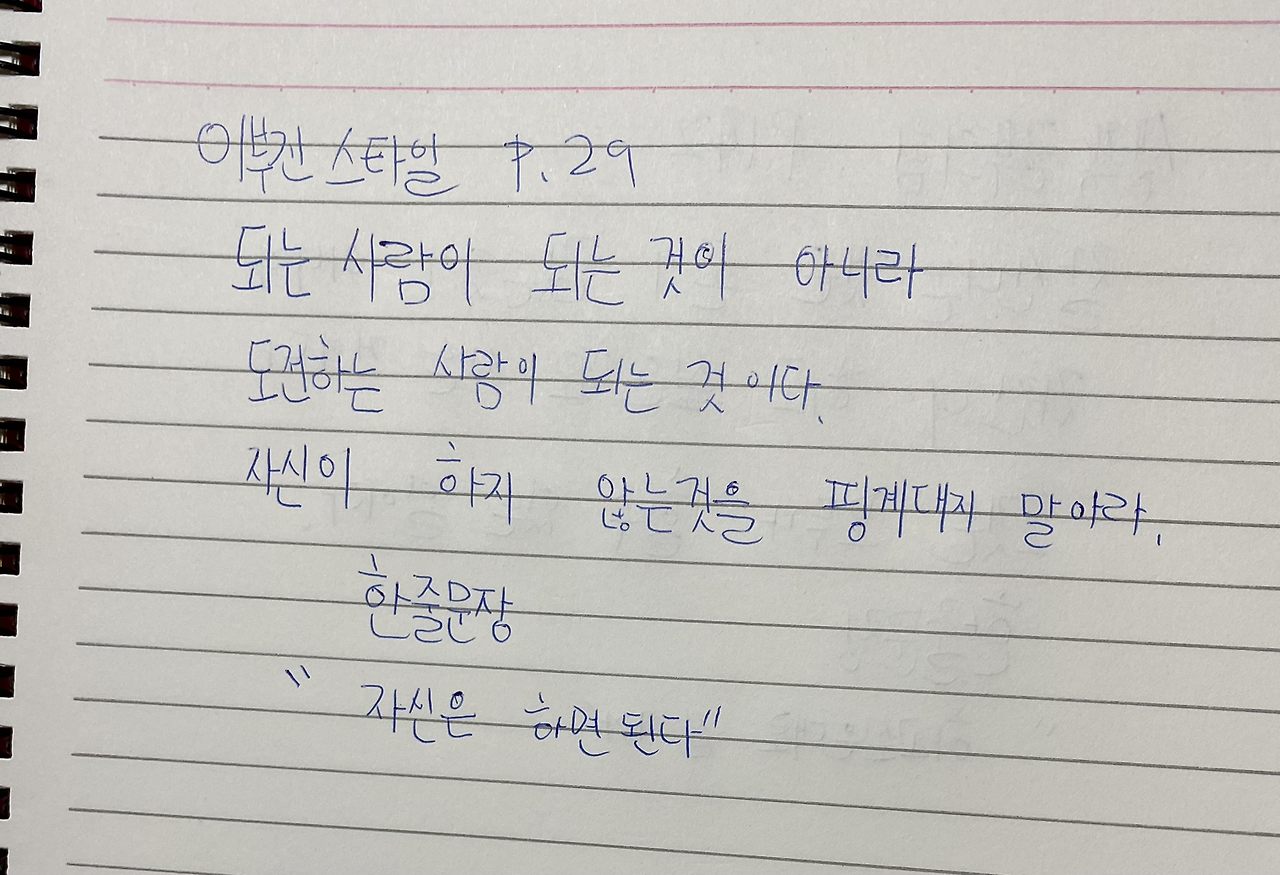 이부건 스타일 p. 29
되는 사람이 되는 것이 아니라
도전하는 사람이 되는 것 이다.
자신이 하지 않는것을 핑계대지 말아라.
한줄문장
"자신은 하면 된다"